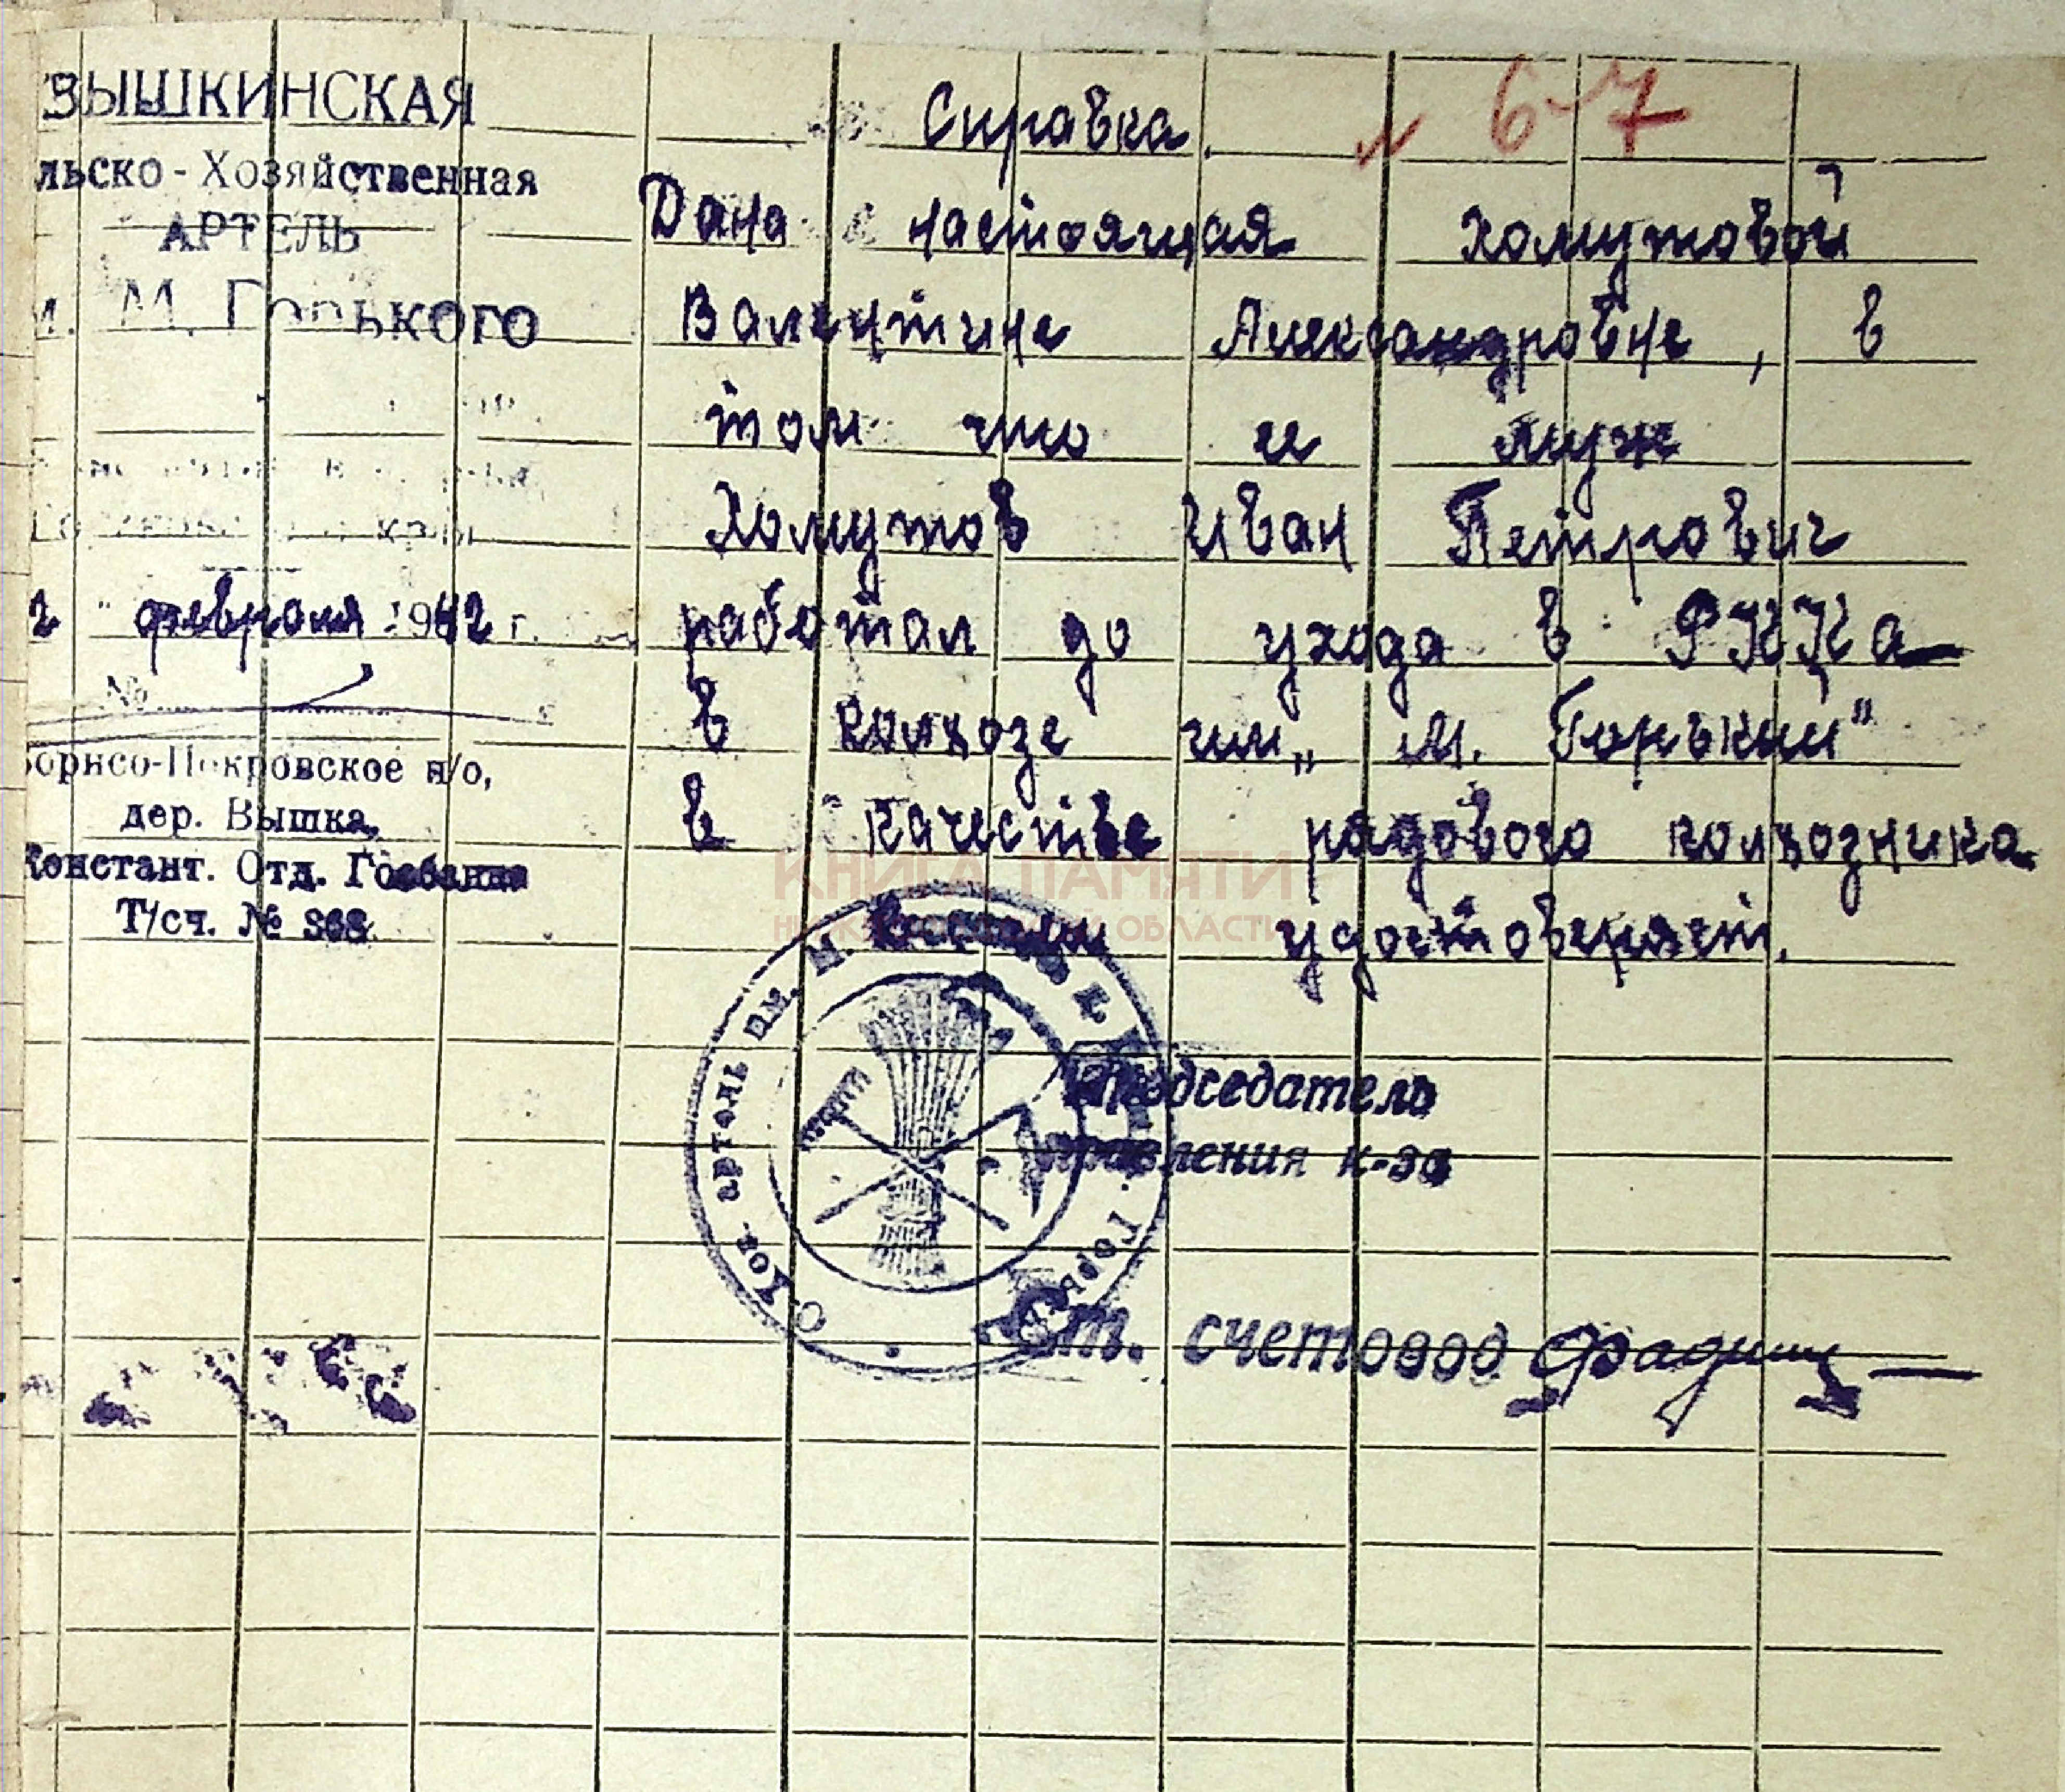 ВЫШКИНСКАЯ
льско-Хозяйственная
АРТЕЛЬ
М. Горького
2 " февраля 1942 г.
№
Борисо-Покровское п/о,
дер. Вышка,
Констант. Отд. Госбанка
Т/сч. № 368
6-7
Справка.
Дана настоящая Хомутовой
Валентине Александровне, в
том что и муж
Хомутов Иван Петрович
работал до ухода в РККа
в колхозе им „М. Горький"
в качестве рядового колхозника
удостоверяет.
КНИГА ПАМЯТИ
НИЖЕГОРОДСКОЙ ОБЛАСТИ
С-Хоз. артель им. М. Горьк
Председатель
правления к-за
Ст. счетовод Фадин